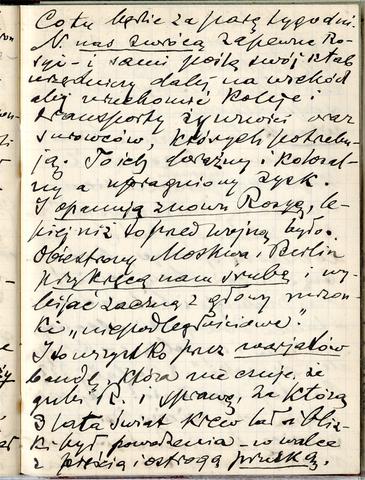 Co tu będzie za parę tygodni.
N. nas zwrócą zapewne Ro-
syi - i sami pójdą swój sztab
urzędniczy dalej na wschód
aby uruchomić koleje i
transporty żywności oraz
surowców, których potrzebu-
ją. To ich doraźny i kolosal-
ny a upragniony zysk.
I opanują znowu Rosyę, le-
piej niż to przed wojną było.
Obiestrony Moskwa i Berlin
przykręcą nam śrubę i wy-
bijać zaczną z głowy mrzon-
ki "niepodległościowe".
I to wszystko przez waryatów
bandę, która nie czuje, że
gubi R. i sprawę, za którą
3 lata świat krew lał i bliz-
ki był powodzenia - w walce
z pięścią i ostrogą pruską.